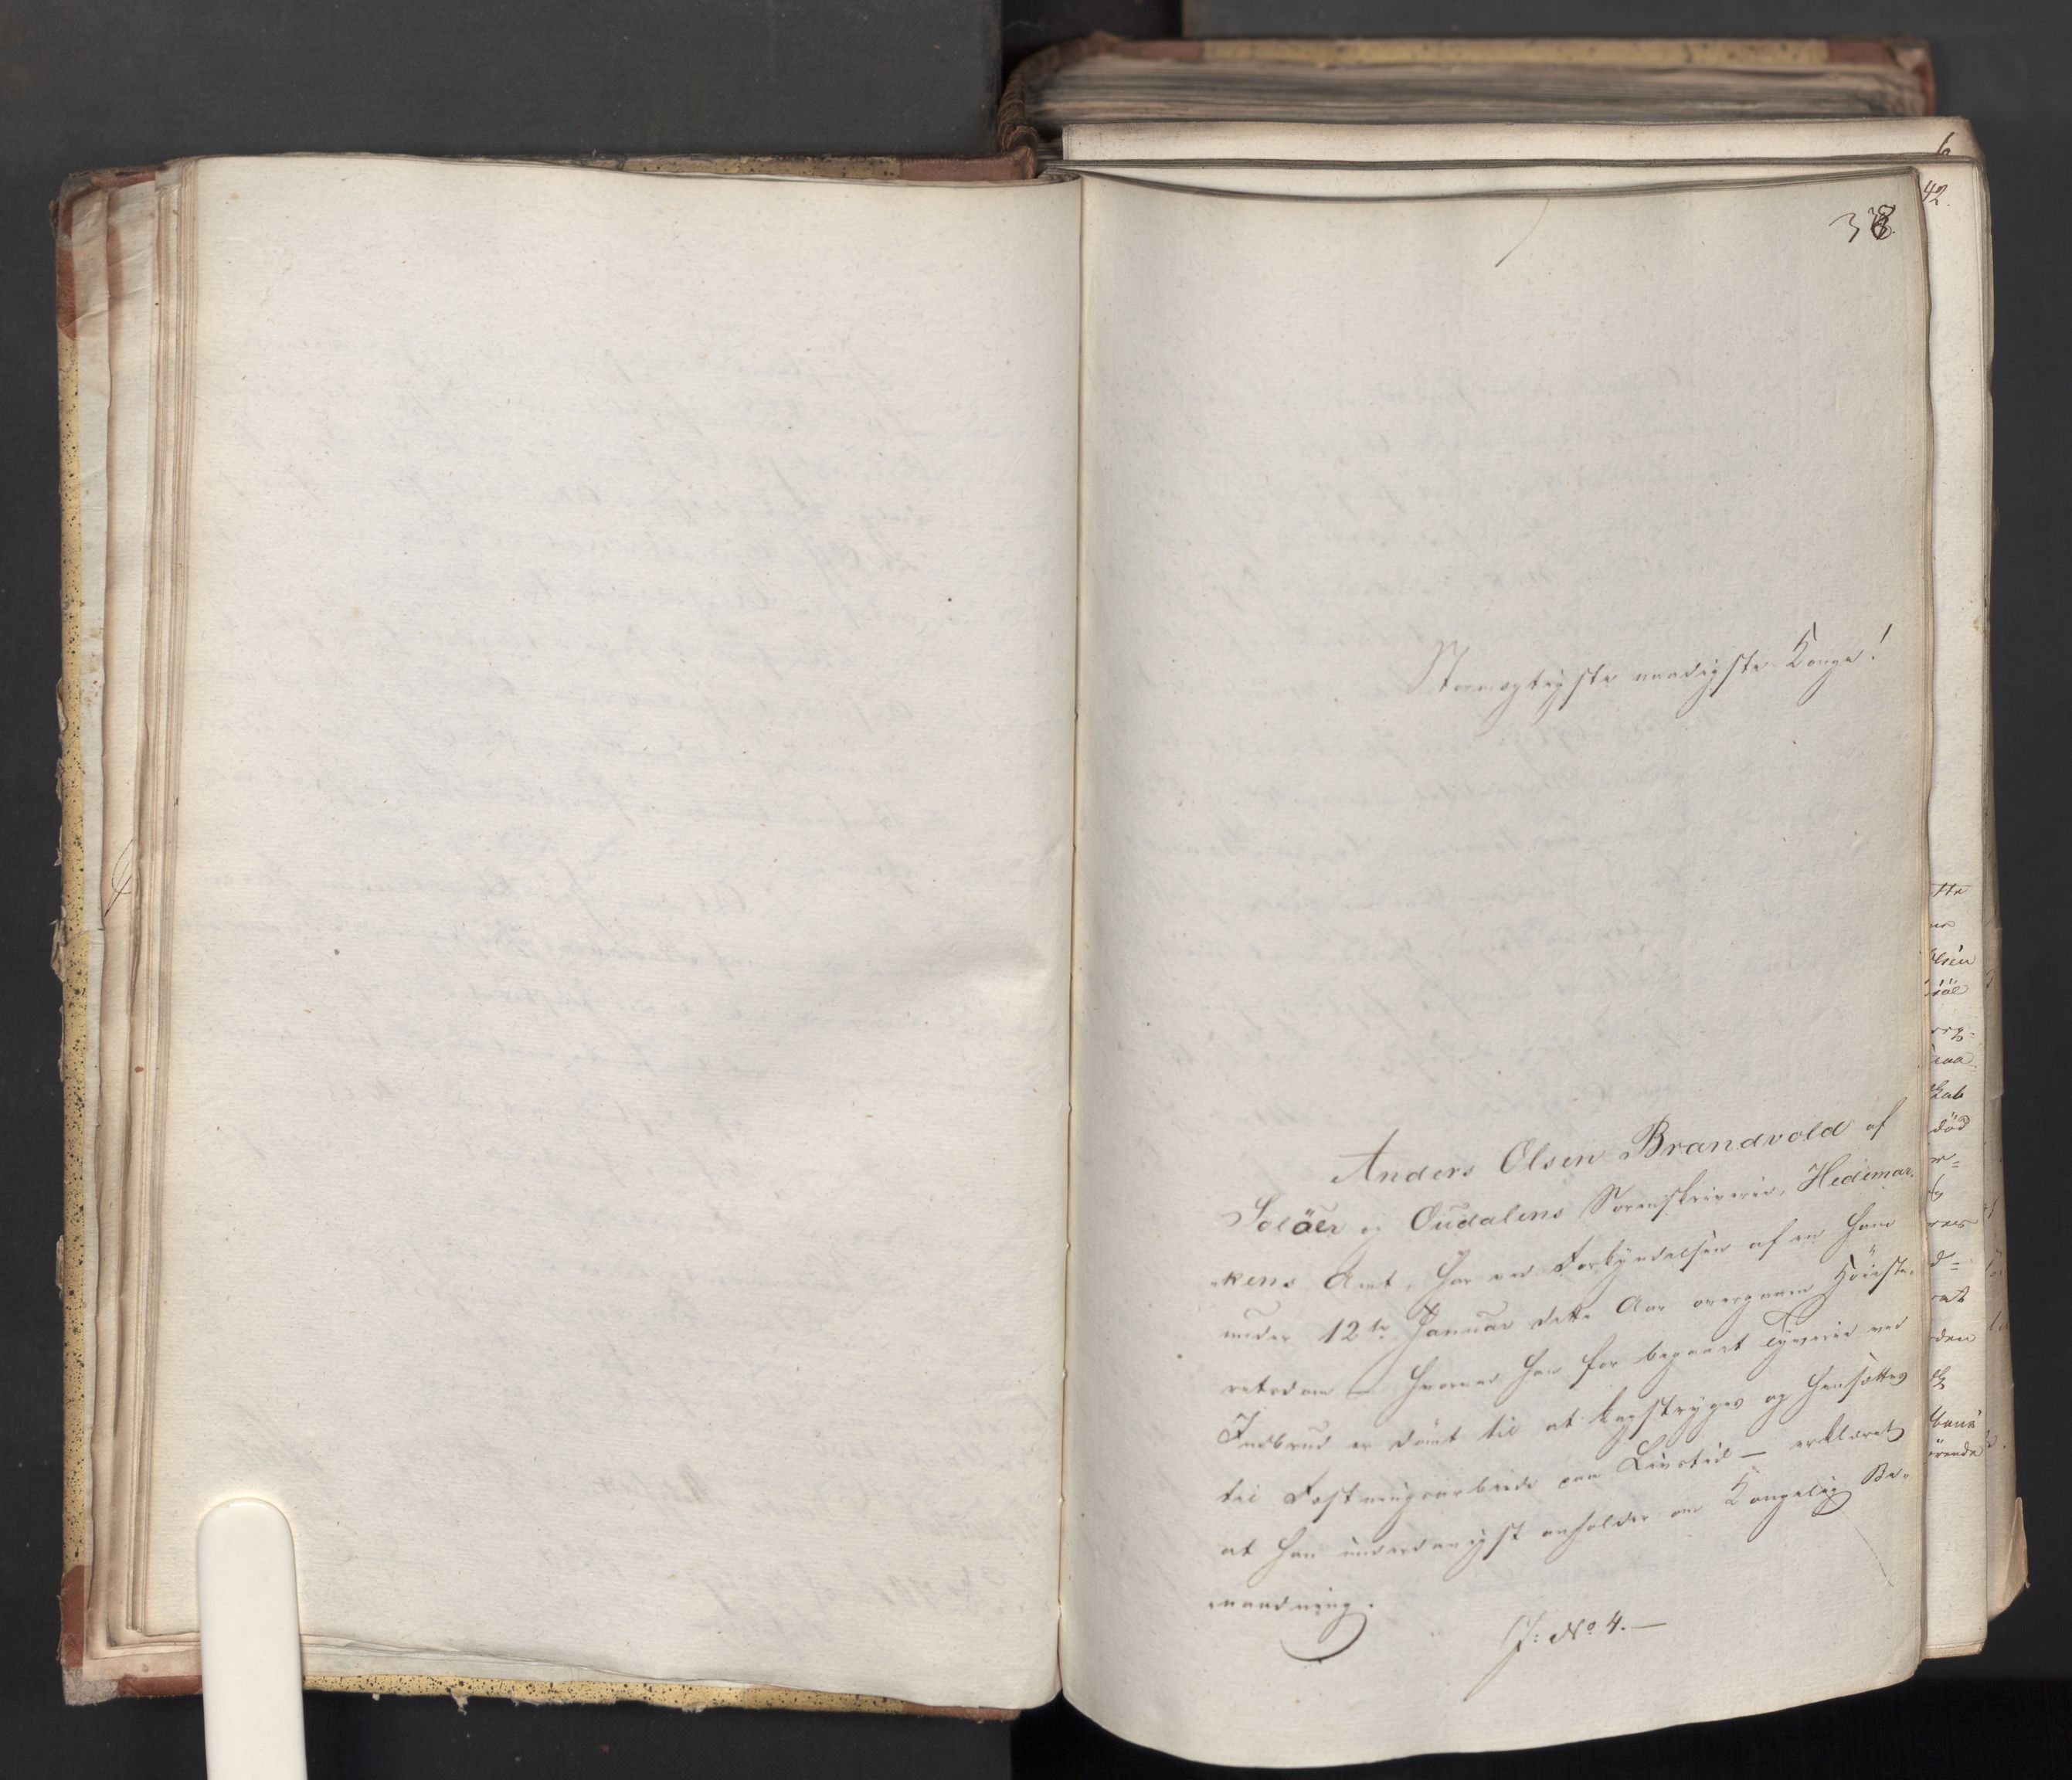 38.
42.
Stormægtigste naadigste Konge!
Anders Olsen Brandvold af
Soløer og Oudalens Sorenskriverie, Hedemar-
-kens Amt, har ved Forkyndelsen af en ham
under 12te Januar dette Aar overgaaen Høieste-
retsdom – hvorved han for begaaet Tyverie ved
Indbrud er dømt til at kagstryges og hensættes
til Fæstningsarbeide paa Livstid – erklæret
at han underdanigst anholder om Kongelig Be-
naadning.
J: No 4. —